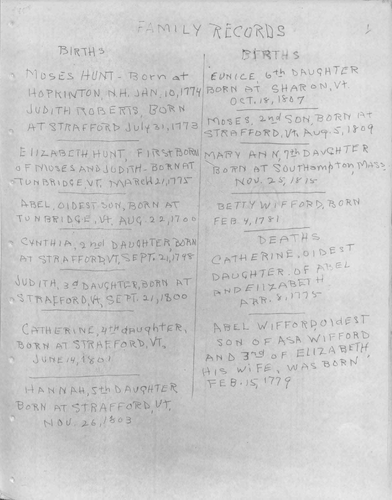 FAMILY RECORDS
1
BIRTHS
MOSES HUNT - Born at
HOPKINTON N.H. JAN. 10, 1774
JUDITH ROBERTS, BORN
AT STRAFFORD July 31, 1773
ELIZABETH HUNT, FIRST BORN
OF MOSES AND JUDITH - BORN AT
TUNBRIDGE, VT. MARCH 21, 1795
ABEL, OLDEST SON, BORN AT
TUNBRIDGE, Vt. AUG. 22, 1700
CYNTHIA, 2nd DAUGHTER BORN
AT STRAFFORD, VT, SEPT. 21, 1798
JUDITH, 3rd DAUGHTER, BORN AT
STRAFFORD, Vt, SEPT. 21, 1800
CATHERINE, 4th daughter,
BORN AT STRAFFORD, VT.
JUNE 14, 1801
HANNAH, 5th DAUGHTER
BORN AT STRAFFORD, Vt,
NOV. 26, 1803
BIRTHS
EUNICE, 6th DAUGHTER
BORN AT SHARON, Vt
OCT. 18, 1807
MOSES, 2nd SON, BORN AT
STRAFFORD, Vt, AUG. 5, 1809
MARY ANN, 7th DAUGHTER
BORN AT Southampton Mass.
NOV. 25,
BETTY WIFFORD, BORN
FEB 4, 1781
DEATHS
CATHERINE, OLDEST
DAUGHTER OF ABEL
AND ELIZABETH
APR. 8, 1775
ABEL WIFFORD, OLDEST
SON OF ASA WIFFORD
AND 3rd OF ELIZABETH
HIS WIFE, WAS BORN
FEB. 15, 1779